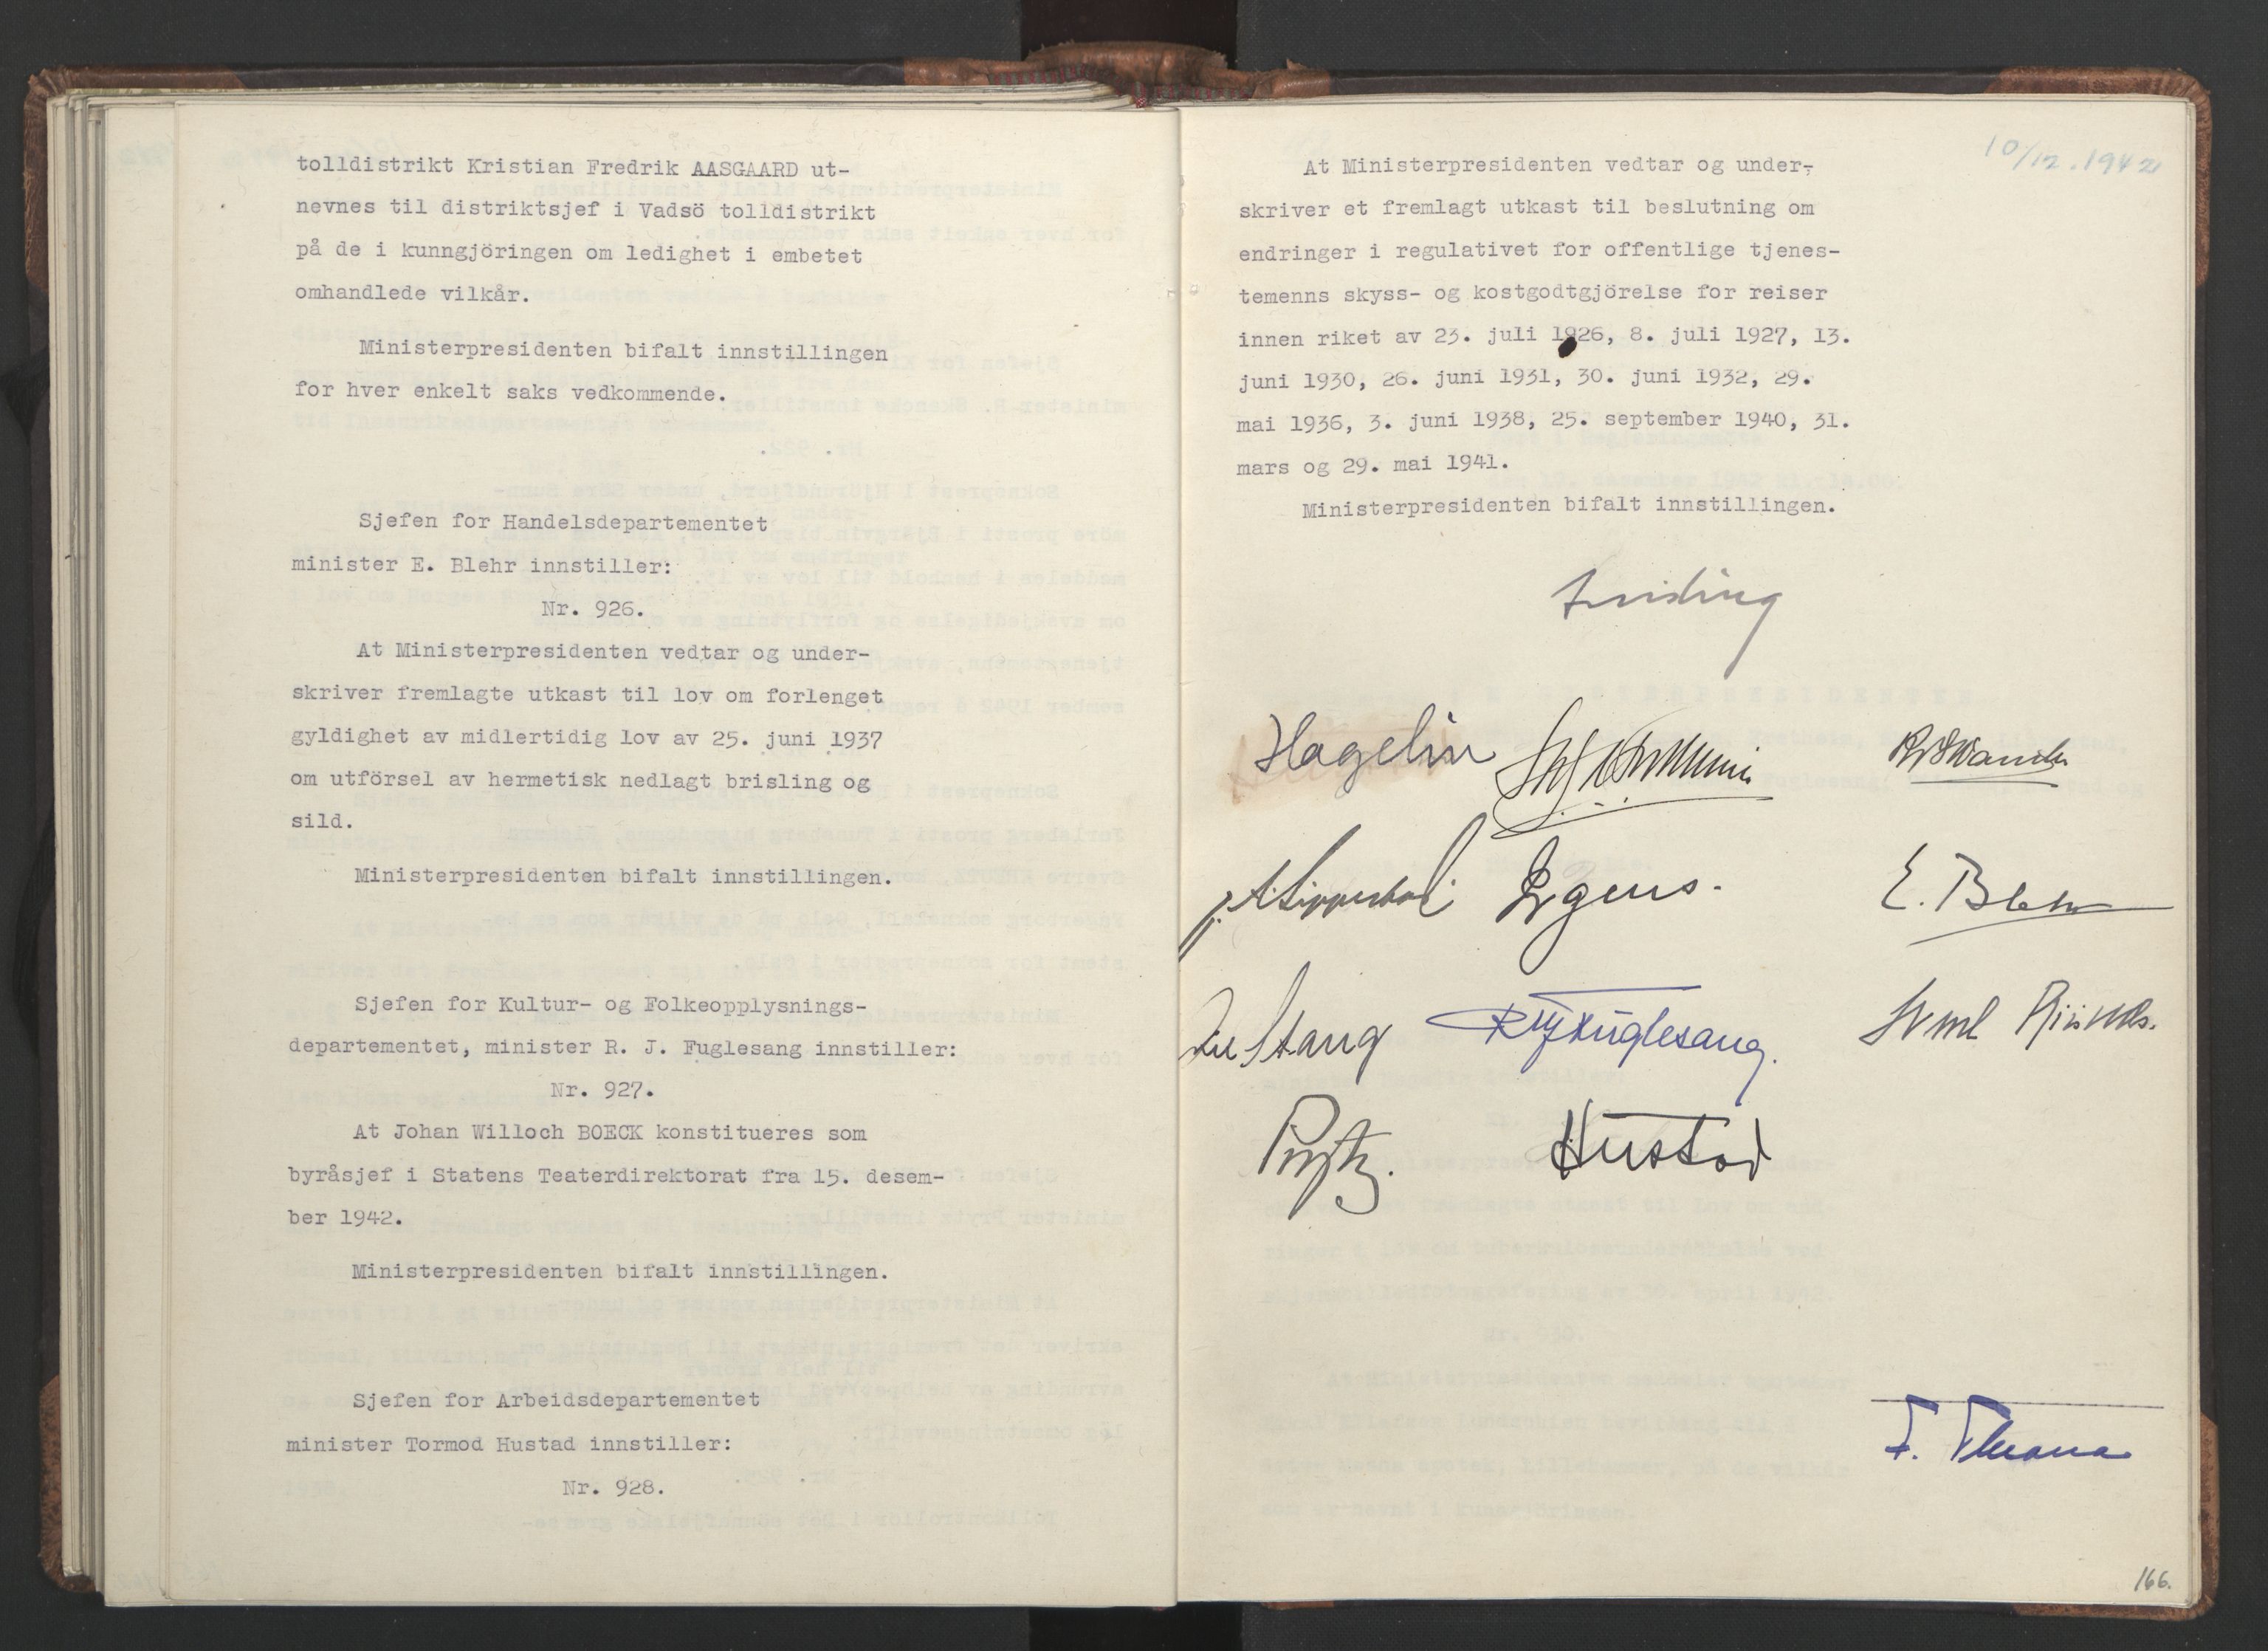 tolldistrikt Kristian Fredrik AASGAARD ut-
nevnes til distriktsjef i Vadsö tolldistrikt
på de i kunngjöringen om ledighet i embetet
omhandlede vilkår.
Ministerpresidenten bifalt innstillingen
for hver enkelt saks vedkommende.
Sjefen for Handelsdepartementet
minister E. Blehr innstiller:
Nr. 926.
At Ministerpresidenten vedtar og under-
skriver fremlagte utkast til lov om forlenget
gyldighet av midlertidig lov av 25. juni 1937
om utförsel av hermetisk nedlagt brisling og
sild.
Ministerpresidenten bifalt innstillingen.
Sjefen for Kultur- og Folkeopplysnings-
departementet, minister R. J. Fuglesang innstiller:
Nr. 927.
At Johan Willoch BOECK konstitueres som
byråsjef i Statens Teaterdirektorat fra 15. desem-
ber 1942.
Ministerpresidenten bifalt innstillingen.
Sjefen for Arbeidsdepartementet
minister Tormod Hustad innstiller:
Nr. 928.
10/12.1942
At Ministerpresidenten vedtar og under-
skriver et fremlagt utkast til beslutning om
endringer i regulativet for offentlige tjenes-
temenns skyss- og kostgodtgjörelse for reiser
innen riket av 23. juli 1926, 8. juli 1927, 13.
juni 1930, 26. juni 1931, 30. juni 1932, 29.
mai 1936, 3. juni 1938, 25. september 1940, 31.
mars og 29. mai 1941.
Ministerpresidenten bifalt innstillingen.
Quisling
Hagelin
Irgens.
E. Blehr
Stang
RJFuglesang.
Prytz.
Hustad
166.